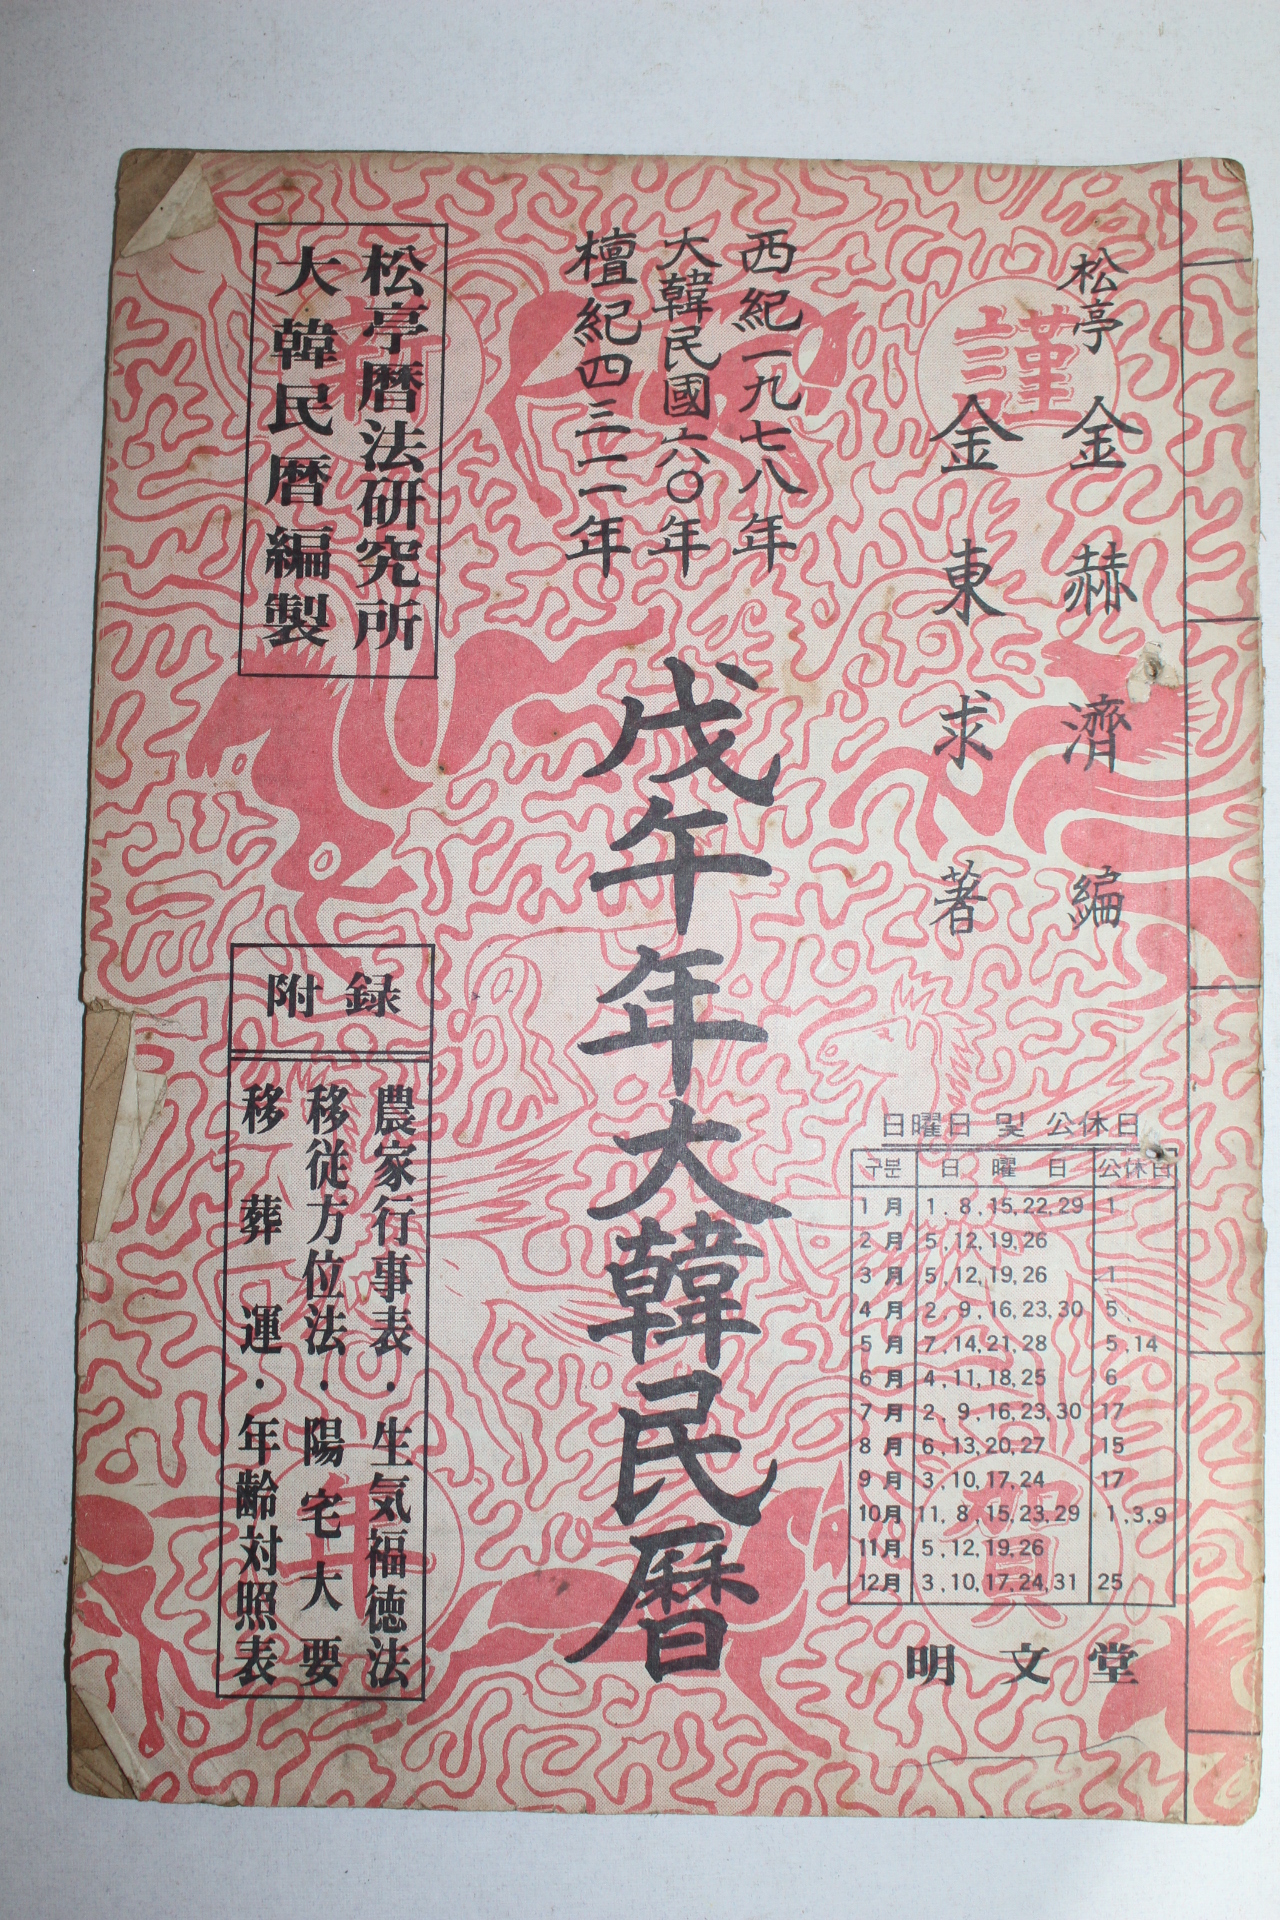 松亭 金赫濟 編
金東求 著
西紀一九七八年
大韓民國六〇年
檀紀四三一一年
戊午年大韓民曆
松亭曆法研究所
大韓民曆編製
附錄
農家行事表・生気福徳法
移従方位法・陽宅大要
移葬運・年齢対照表
謹
賀
新
年
日曜日 및 公休日
구분 日曜日 公休日
1月 1.8,15,22,29 1
2月 5,12,19,26
3月 5,12,19,26 1
4月 2,9,16,23,30 5
5月 7,14,21,28 5,14
6月 4,11,18,25 6
7月 2,9,16,23,30 17
8月 6,13,20,27 15
9月 3,10,17,24 17
10月 11,8,15,23,29 1,3,9
11月 5,12,19,26
12月 3,10,17,24,31 25
明文堂